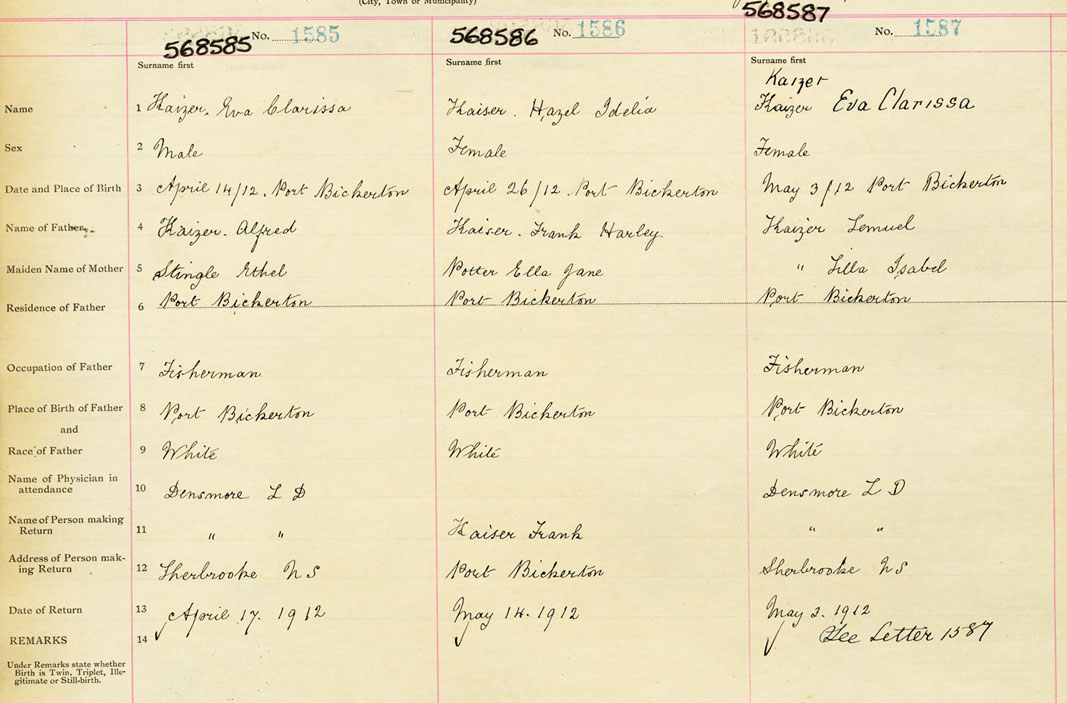 (City, Town or Municipality)
568585 No. 1585 568586 No. 1586 568587 No. 1587
Surname first Surname first Surname first
Kaizer
Name 1 Kaizer. Eva Clarissa Kaiser. Hazel Idelia Kaizer Eva Clarissa
Sex 2 Male Female Female
Date and Place of Birth 3 April 14/12. Port Bickerton April 26/12. Port Bickerton May 3/12 Port Bickerton
Name of Father 4 Kaizer. Alfred Kaiser. Frank Harley Kaizer Lemuel
Maiden Name of Mother 5 Stingle Ethel Potter Ella Jane " Lilla Isabel
Residence of Father 6 Port Bickerton Port Bickerton Port Bickerton
Occupation of Father 7 Fisherman Fisherman Fisherman
Place of Birth of Father 8 Port Bickerton Port Bickerton Port Bickerton
and
Race of Father 9 White White White
Name of Physician in
attendance 10 Densmore L D Densmore L D
Name of Person making
Return 11 " " Kaiser Frank " "
Address of Person mak-
ing Return 12 Sherbrooke N S Port Bickerton Sherbrooke N S
Date of Return 13 April 17. 1912 May 14. 1912 May 3. 1912
REMARKS 14 See Letter 1587
Under Remarks state whether
Birth is Twin, Triplet, Ille-
gitimate or Still-birth.